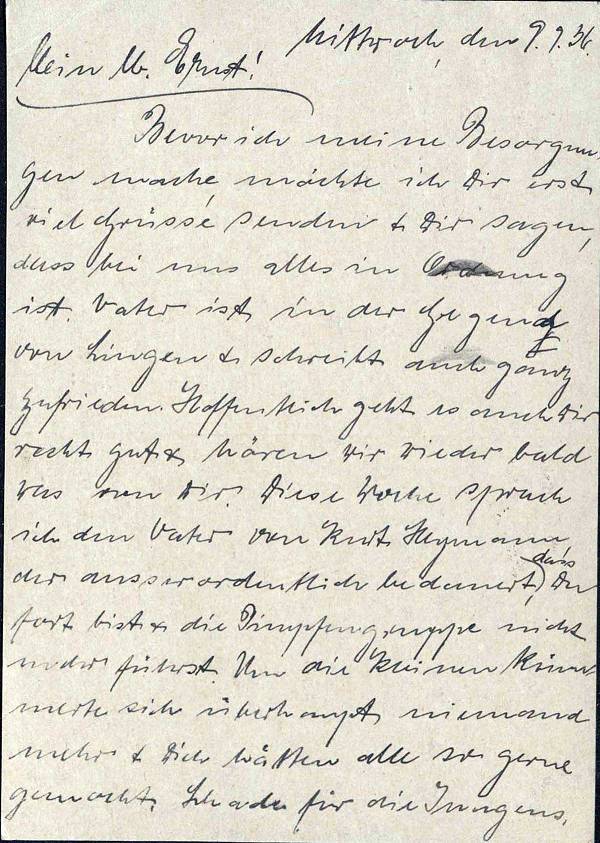 Mittwoch, den 9.9.36.
Mein lb. Ernst!
Bevor ich meine Besorgun-
gen mache, möchte ich Dir erst
viel Grüsse senden & Dir sagen,
dass bei uns alles in Ordnung
ist. Vater ist in der Gegend
von Lingen & schreibt auch ganz
zufrieden. Hoffentlich geht es auch Dir
recht gut & hören wir wieder bald
was von Dir. Diese Woche sprach
ich den Vater von Kurt Heymann
der ausserordentlich bedauert, dass Du
fort bist & die Pimpfengruppe nicht
mehr führst. Um die kleinen küm-
merte sich überhaupt niemand
mehr & Dich hätten alle so gerne
gemocht. Schade für die Jungens.